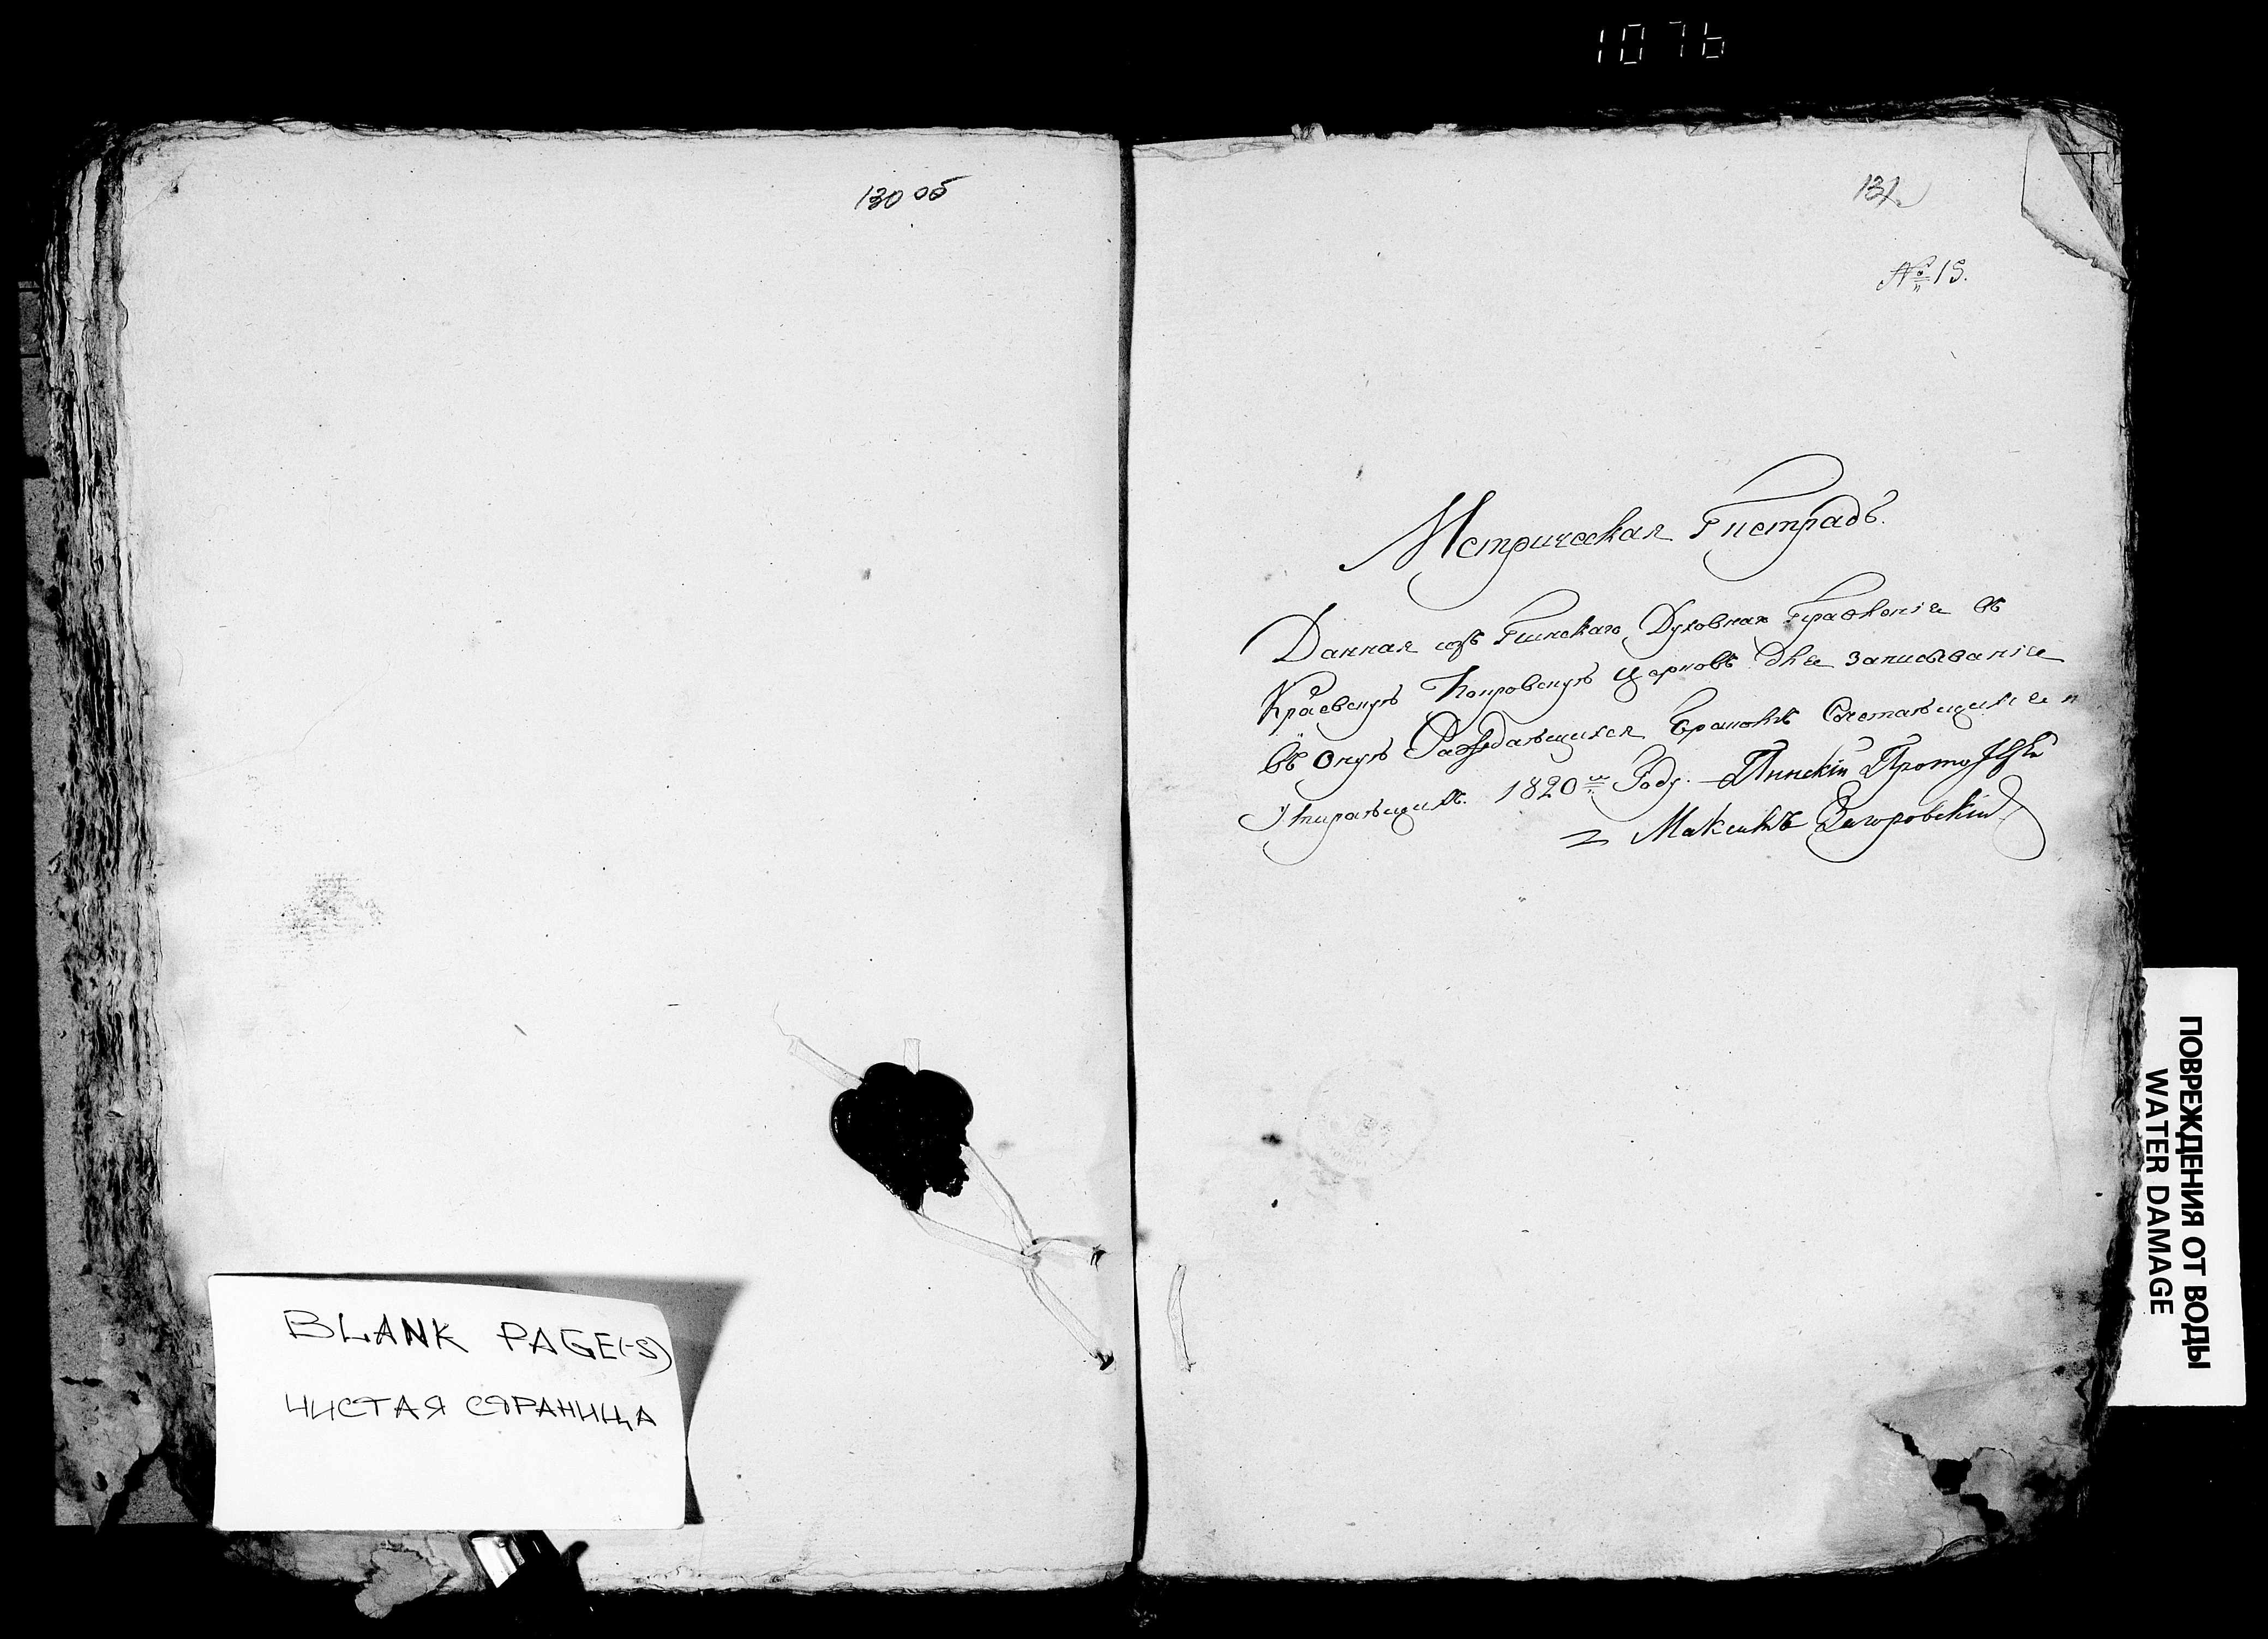 1076
130 об
131
№ 15.
Метрическая Тистрадь.
Данная изъ Пинскаго Духовнаго Правленія въ
Краевскую Покровскую церковь для записыванія
въ оную Раждающихся, Бракомъ Сочетающихся и
Умирающихъ. 1820го Году. Пинскій Прото
Максимъ Загоровскій
BLANK PAGE(-S)
ЧИСТАЯ СТРАНИЦА
ПОВРЕЖДЕНИЯ ОТ ВОДЫ
WATER DAMAGE